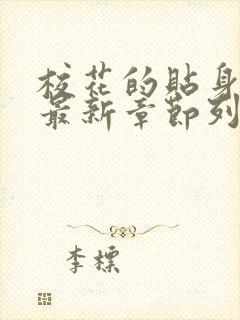 校花的贴身
最新章节列
李标